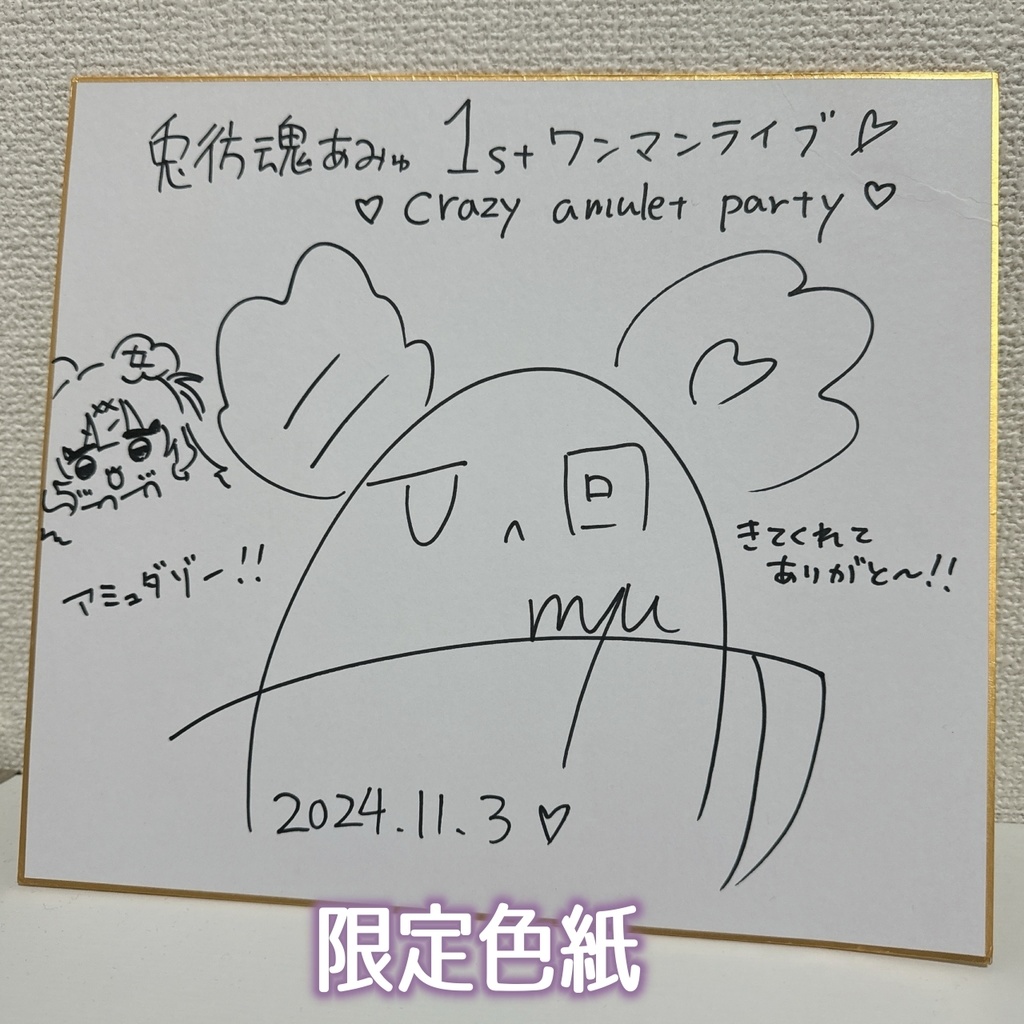 兎彷魂あみゅ 1st ワンマンライブ♡
♡ crazy amulet party ♡
アミュダゾー!!
きてくれて
ありがと〜!!
myu
2024.11.3♡
限定色紙